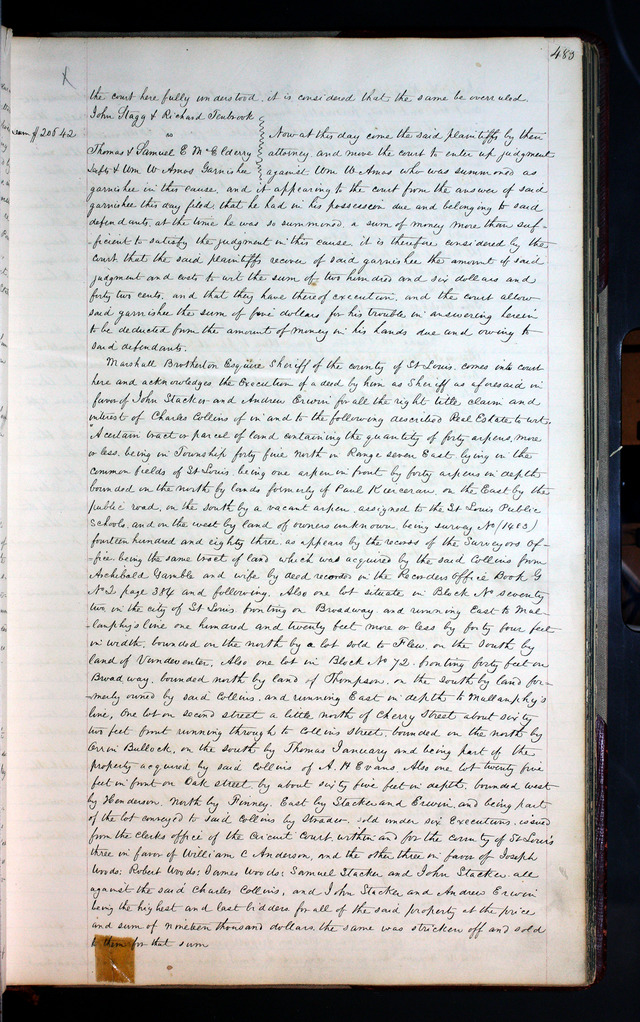 483
the court here fully understood, it is considered that the same be overruled
John Stagg & Richard Tenbrook
vs
Thomas & Samuel E McElderry
Defts & Wm W Amos Garnishee
Now at this day come the said plaintiffs by their
attorney, and move the court to enter up judgment
against Wm W Amos who was summoned as
garnishee in this cause, and it appearing to the court from the answer of said
garnishee this day filed, that he had in his possession due and belonging to said
defendants, at the time he was so summoned, a sum of money more than suf-
-ficient to satisfy the judgment in this cause it is therefore considered by the
court that the said plaintiffs recover of said garnishee the amount of said
judgment and costs to wit the sum of two hundred and six dollars and
forty two cents, and that they have thereof execution, and the court allow
said garnishee the sum of five dollars for his trouble in answering herein
to be deducted from the amount of money in his hands due and owing to
said defendants.
Marshall Brotherton Esquire Sheriff of the county of St Louis, comes into court
here and acknowledges the Execution of a deed by him as Sheriff as aforesaid in
favor of John Stacker and Andrew Erwin for all the right title, claim and
interest of Charles Collins of in and to the following described Real Estate to wit,
"A certain tract or parcel of land containing the quantity of forty arpens, more
or less, being in Township forty five North in Range seven East, lying in the
common fields of St Louis, being one arpen in front by forty arpens in depth
bounded on the north by lands formerly of Paul Kiercerau, on the East by the
public road, on the south by a vacant arpen, assigned to the St Louis Public
Schools, and on the west by land of owners unknown, being survey No (1483)
fourteen hundred and eighty three, as appears by the records of the Surveyors Of-
-fice being the same tract of land which was acquired by the said Collins from
Archibald Gamble and wife by deed recorded in the Recorders office Book G
No 2 page 384 and following. Also one lot situate in Block No seventy
two in the city of St Louis fronting on Broadway and running East to Mul-
-lanphy's line one hundred and twenty feet more or less by forty four feet
in width, bounded on the north by a lot sold to Flew, on the south by
land of Vandeventer, Also one lot in Block No 72. fronting forty feet on
Broadway, bounded north by land of Thompson, on the south by land for-
-merly owned by said Collins, and running East in depth to Mullanphy's
line, One lot on second street a little north of Cherry Street about sixty
two feet front running through to Collins street, bounded on the north by
Orrin Bullock, on the south by Thomas January and being part of the
property acquired by said Collins of A. H Evans Also one lot twenty five
feet in front on Oak street by about sixty five feet in depth, bounded west
by Henderson, North by Finney, East by Stacker and Erwin, and being part
of the lot conveyed to said Collins by Strader, sold under six Executions, issued
from the clerks office of the Circuit Court within and for the county of St Louis
three in favor of William C Anderson, and the other three in favor of Joseph
Woods; Robert Woods; James Woods; Samuel Stacker and John Stacker, all
against the said Charles Collins, and John Stacker and Andrew Erwin
being the highest and last bidders for all of the said property at the price
and sum of nineteen thousand dollars, the same was stricken off and sold
to them for that sum